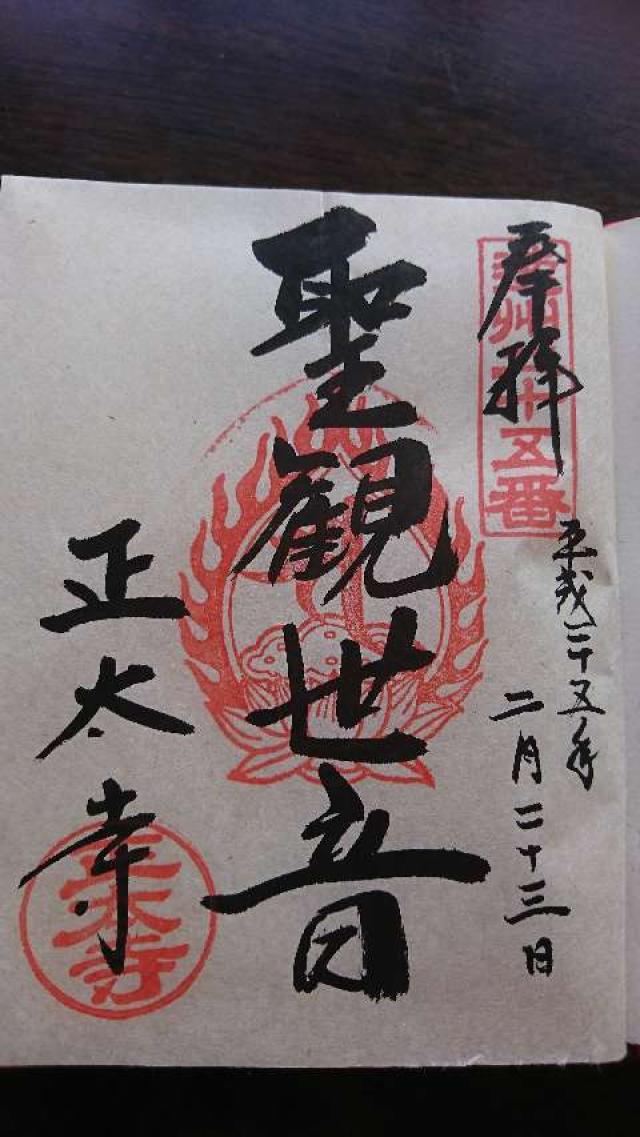 奉拝
遠州三十五番
平成二十五年
二月二十三日
聖観世音
正太寺
正太寺